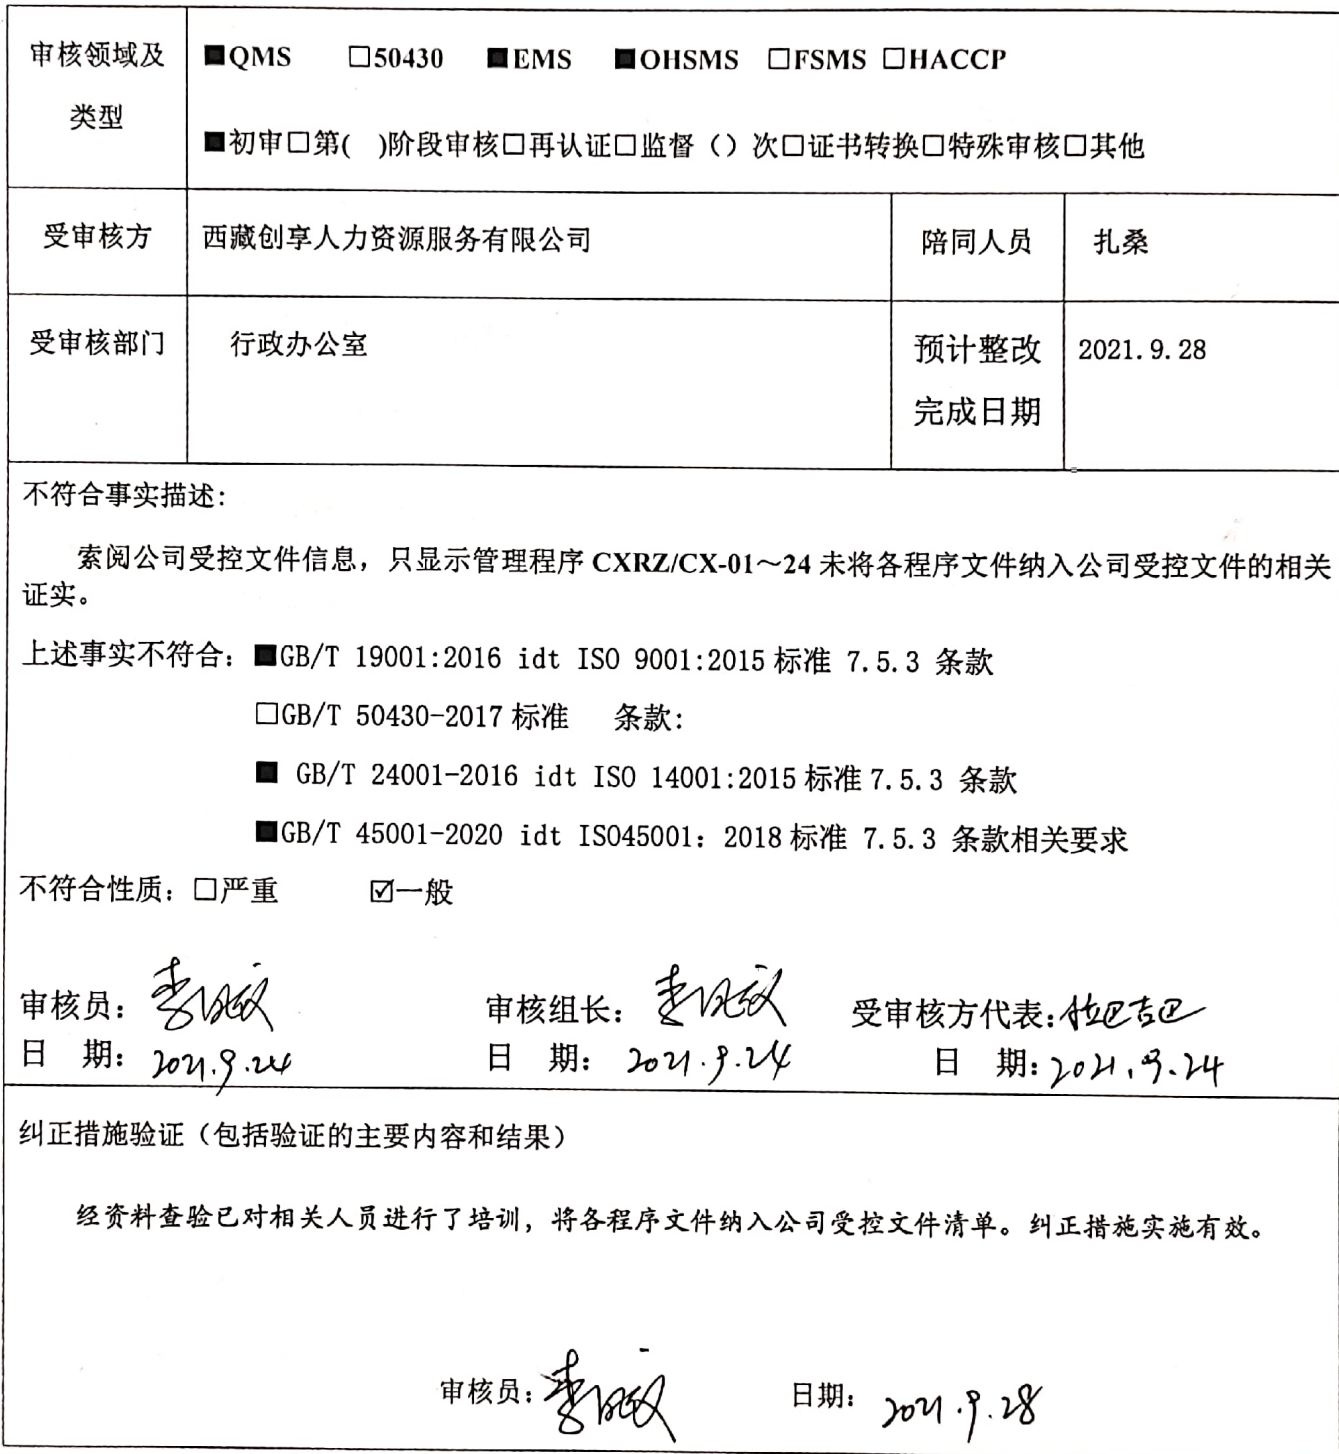 审核领域及
类型
■QMS □50430 ■EMS ■OHSMS □FSMS □HACCP
■初审□第( )阶段审核□再认证□监督（）次□证书转换□特殊审核□其他
受审核方 西藏创享人力资源服务有限公司 陪同人员 扎桑
受审核部门 行政办公室 预计整改 2021.9.28
完成日期
不符合事实描述:
索阅公司受控文件信息，只显示管理程序 CXRZ/CX-01～24 未将各程序文件纳入公司受控文件的相关
证实。
上述事实不符合：■GB/T 19001:2016 idt ISO 9001:2015 标准 7.5.3 条款
□GB/T 50430-2017 标准 条款:
■ GB/T 24001-2016 idt ISO 14001:2015 标准 7.5.3 条款
■GB/T 45001-2020 idt ISO45001：2018 标准 7.5.3 条款相关要求
不符合性质：□严重 ☑一般
审核员： 审核组长： 受审核方代表:拉巴吉巴
日 期：2021.9.24 日 期：2021.9.24 日 期:2021.9.24
纠正措施验证（包括验证的主要内容和结果）
经资料查验已对相关人员进行了培训，将各程序文件纳入公司受控文件清单。纠正措施实施有效。
审核员: 日期: 2021.9.28